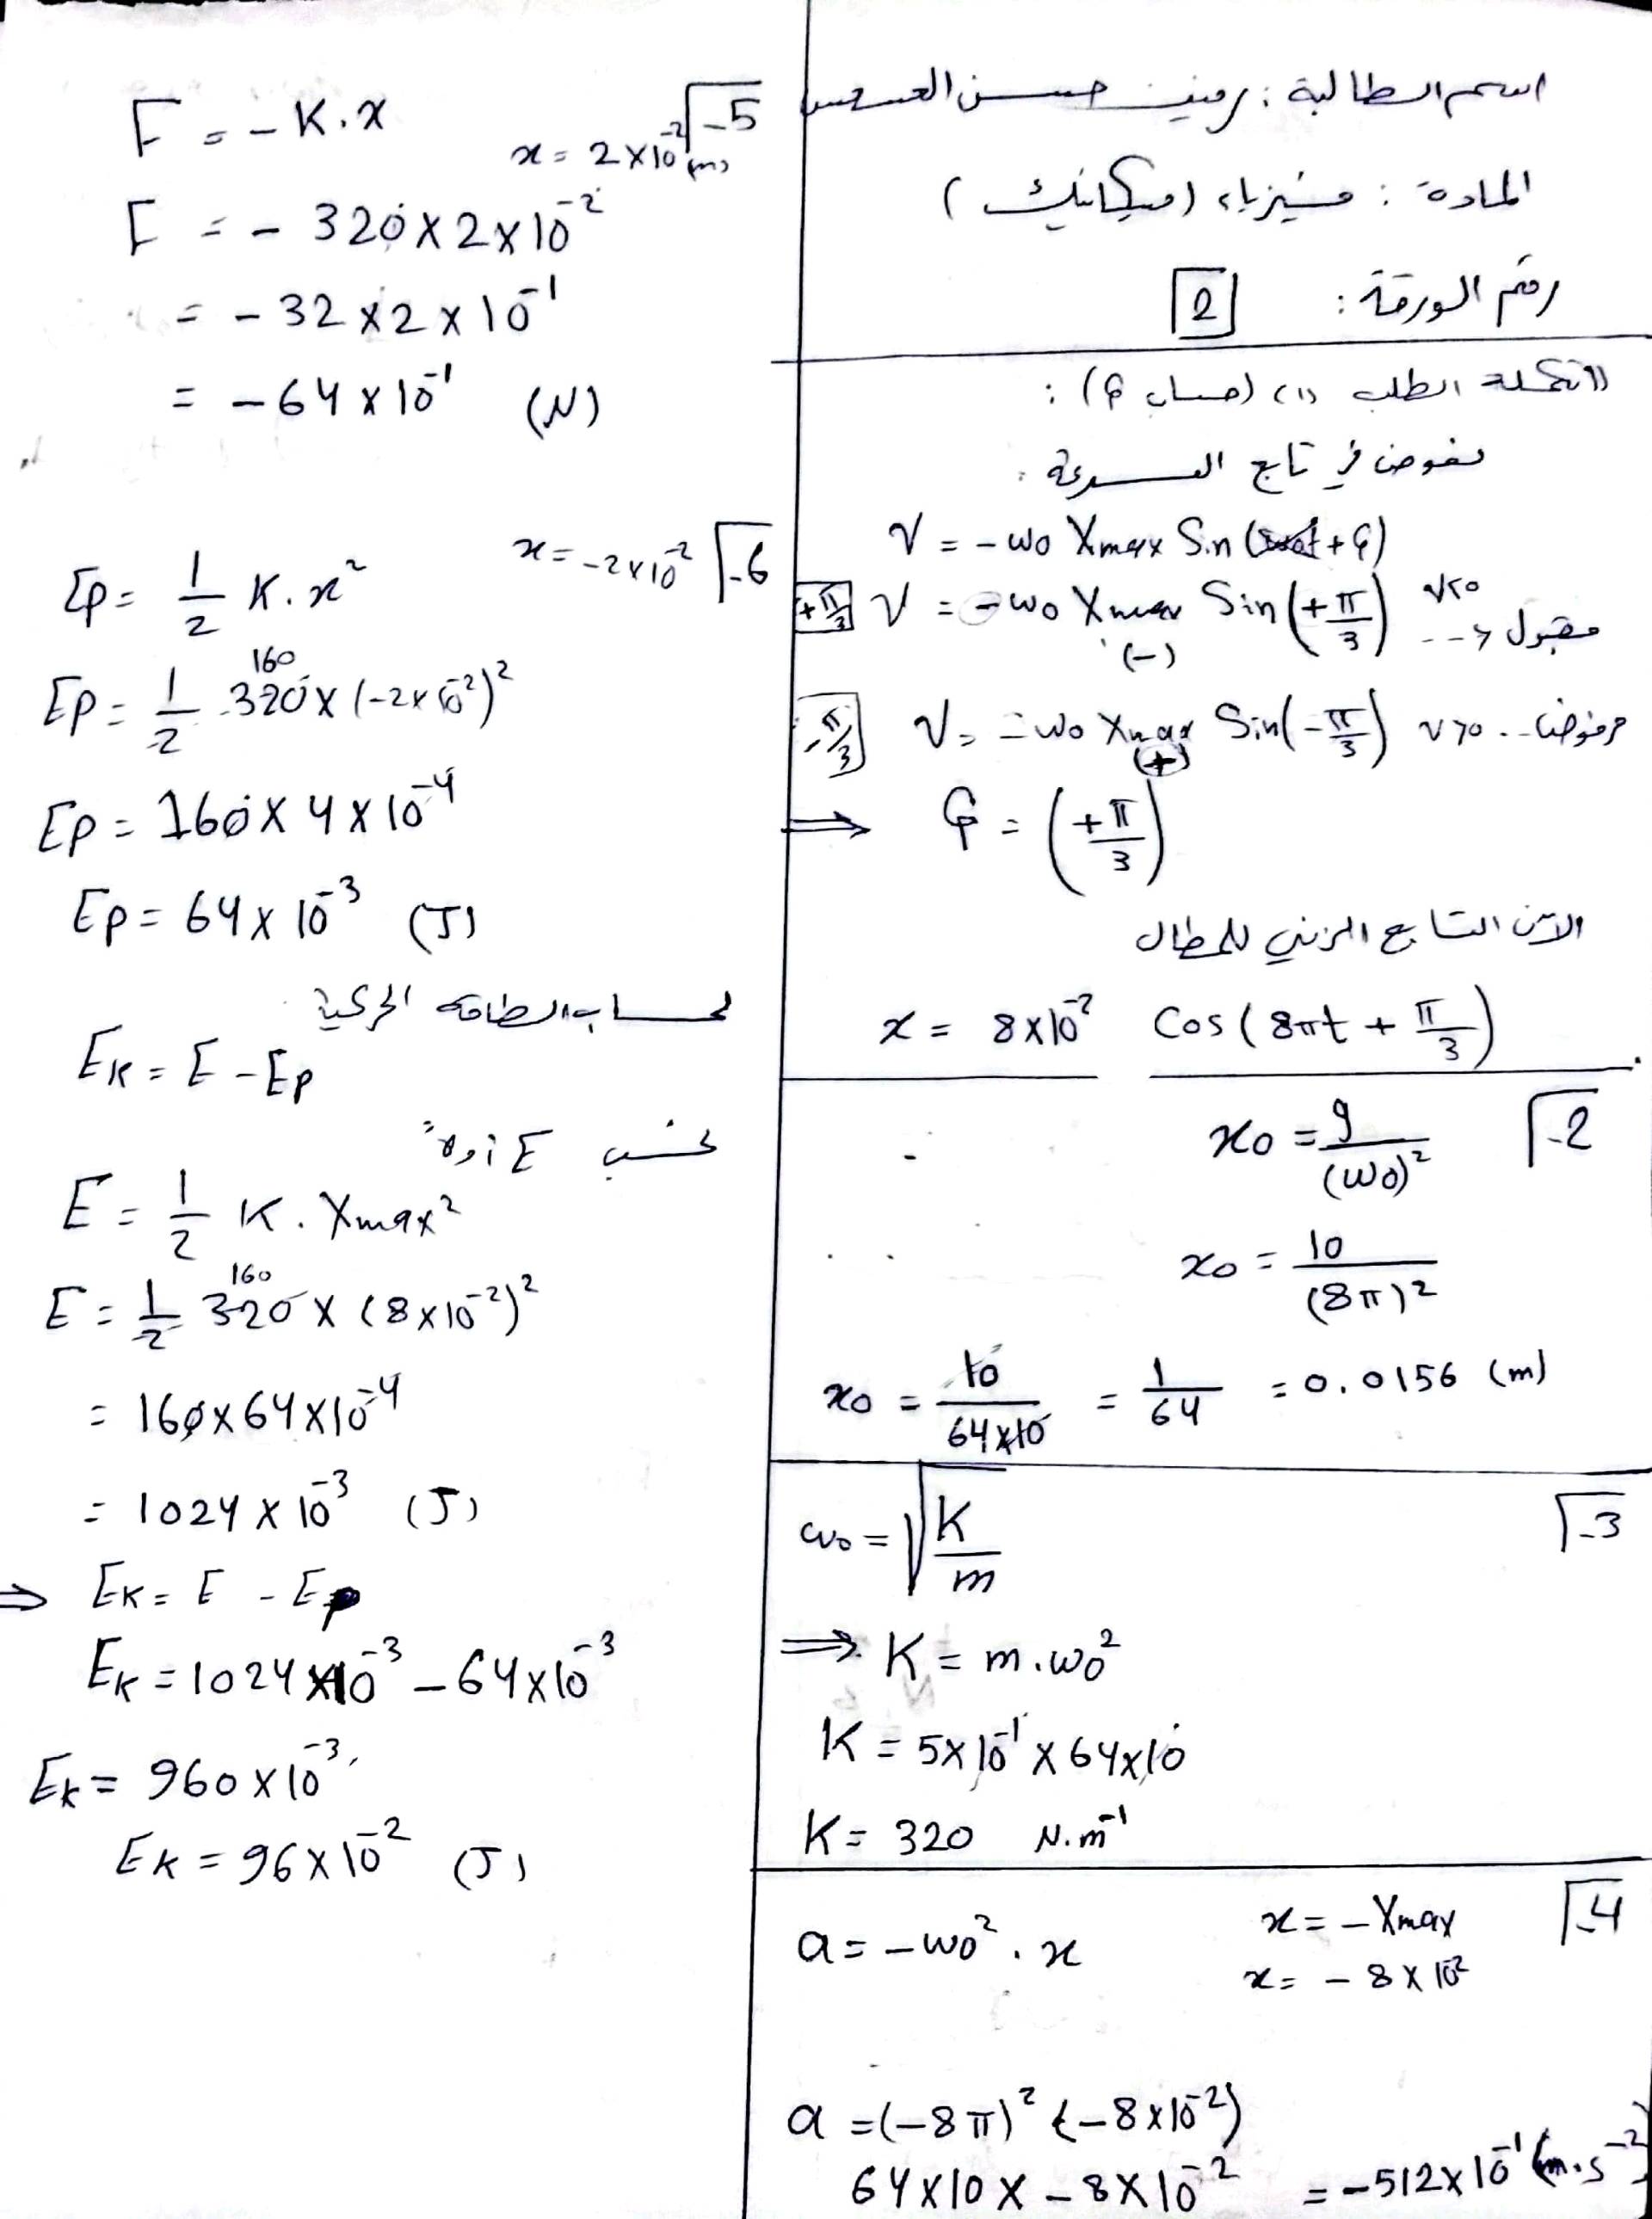 اسم الطالبة: حسن
المادة: فيزياء (ميكانيك)
رقم الورقة: 2
تكملة الطلب (1) (حساب φ):
نعوض في تابع السرعة:
V = -ω0 Xmax Sin (ω0t + φ)
+π/3 V = -ω0 Xmax Sin(+π/3) V<0 --> مقبول
(-)
-π/3 V = -ω0 Xmax Sin(-π/3) V>0 .. مرفوض
(+)
⇒ φ = (+π/3)
الآن التابع الزمني للمطال
x = 8×10^-2 Cos(8πt + π/3)
2-
x0 = g/(ω0)²
x0 = 10/(8π)²
x0 = 10/(64×10) = 1/64 = 0.0156 (m)
3-
ω0 = √(K/m)
⇒ K = m.ω0²
K = 5×10^-1 × 64×10
K = 320 N.m^-1
4-
x = -Xmax
a = -ω0² . x
x = -8×10^-2
a = (-8π)² (-8×10^-2)
64×10×-8×10^-2 = -512×10^-1 (m.s^-2)
5-
F = -K.x
x = 2×10^-2 (m)
F = -320×2×10^-2
= -32×2×10^-1
= -64×10^-1 (N)
6-
x = -2×10^-2
Ep = 1/2 K.x²
160
Ep = 1/2 320×(-2×10^-2)²
Ep = 160×4×10^-4
Ep = 64×10^-3 (J)
لحساب الطاقة الحركية
Ek = E - Ep
نحسب E أولاً
E = 1/2 K.Xmax²
160
E = 1/2 320×(8×10^-2)²
= 160×64×10^-4
= 1024×10^-3 (J)
⇒ Ek = E - Ep
Ek = 1024×10^-3 - 64×10^-3
Ek = 960×10^-3
Ek = 96×10^-2 (J)